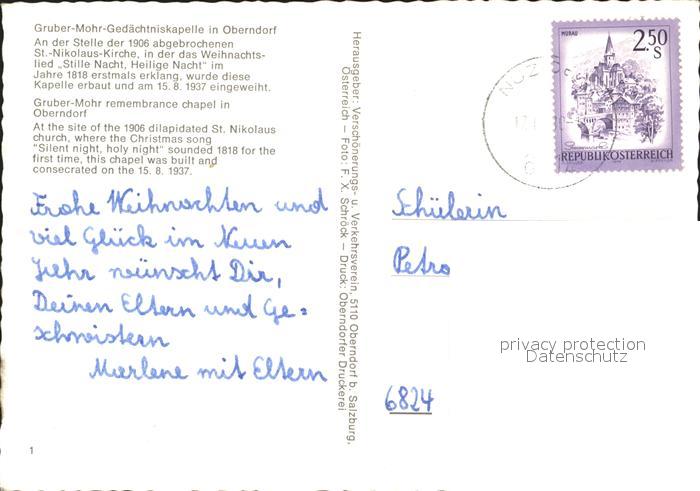 Gruber-Mohr-Gedächtniskapelle in Oberndorf
An der Stelle der 1906 abgebrochenen
St.-Nikolaus-Kirche, in der das Weihnachts-
lied „Stille Nacht, Heilige Nacht" im
Jahre 1818 erstmals erklang, wurde diese
Kapelle erbaut und am 15. 8. 1937 eingeweiht.
Gruber-Mohr remembrance chapel in
Oberndorf
At the site of the 1906 dilapidated St. Nikolaus
church, where the Christmas song
"Silent night, holy night" sounded 1818 for the
first time, this chapel was built and
consecrated on the 15. 8. 1937.
Frohe Weihnachten und
viel Glück im Neuen
Jahr wünscht Dir,
Deinen Eltern und Ge=
schwistern
Marlene mit Eltern
1
Herausgeber: Verschönerungs- u. Verkehrsverein, 5110 Oberndorf b. Salzburg,
Österreich — Foto: F. X. Schröck — Druck: Oberndorfer Druckerei
MURAU
2.50
S
Steiermark
REPUBLIK ÖSTERREICH
Schülerin
Petra
privacy protection
Datenschutz
6824